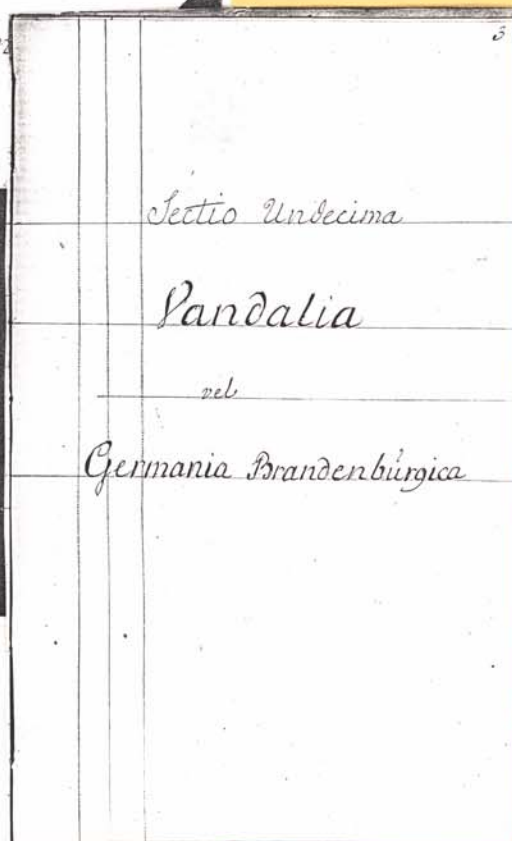 3
Sectio Undecima
Vandalia
vel
Germania Brandenbúrgica